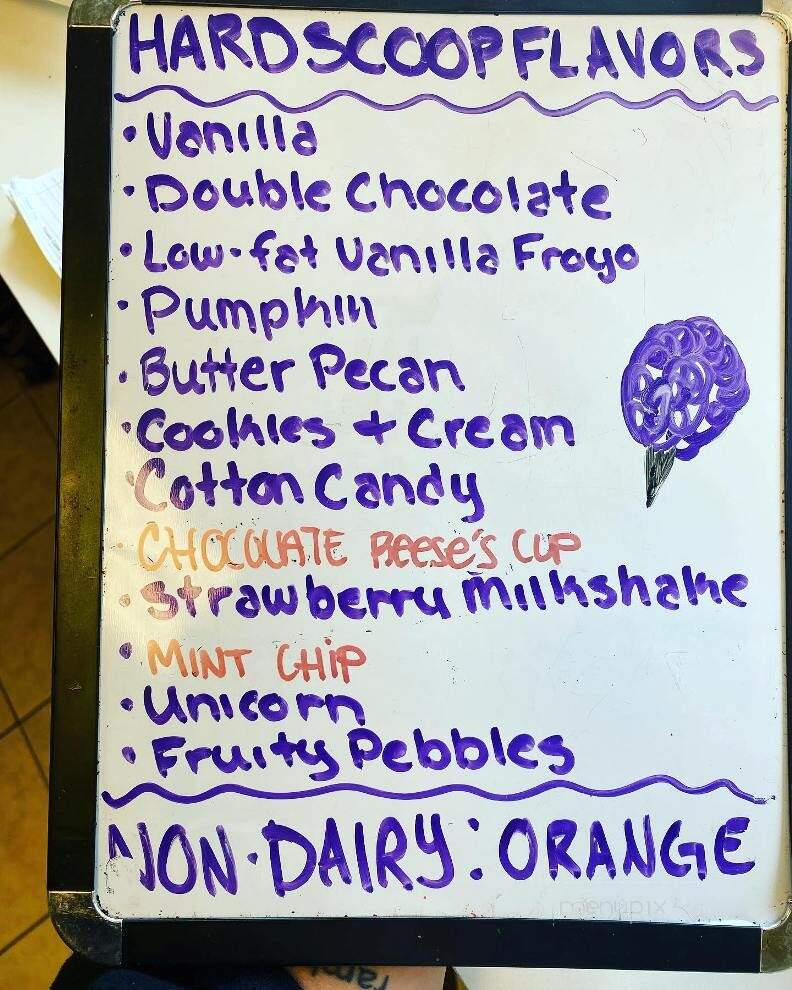 HARD SCOOP FLAVORS
• Vanilla
• Double Chocolate
• Low-fat Vanilla Froyo
• Pumpkin
• Butter Pecan
• Cookies + Cream
• Cotton Candy
• CHOCOLATE REESE'S CUP
• Strawberry Milkshake
• MINT CHIP
• Unicorn
• Fruity Pebbles
NON-DAIRY: ORANGE
menupix